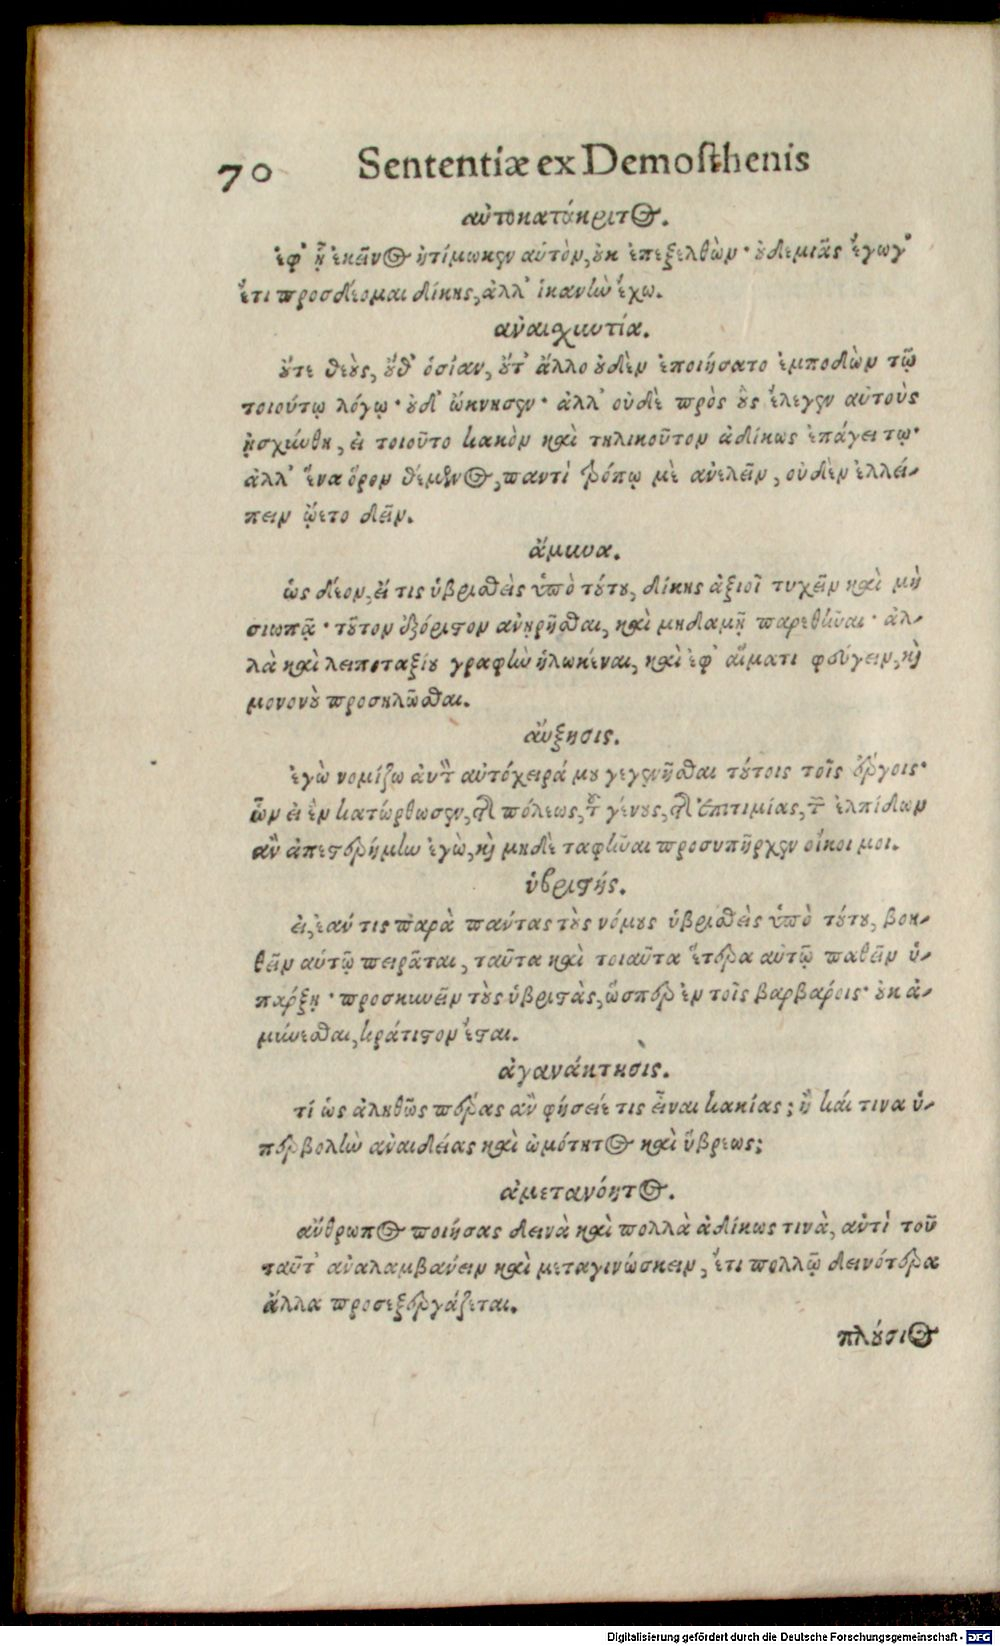 70 Sententiæ ex Demosthenis
αὐτοκατάκριτος.
ἐφ᾽ ᾗ ἐκεῖνος ἠτίμωκεν αὑτὸν, οὐκ ἐπεξελθὼν· οὐδεμιᾶς ἔγωγ᾽
ἔτι προσδέομαι δίκης, ἀλλ᾽ ἱκανὴν ἔχω.
ἀναισχυντία.
οὔτε θεοὺς, οὔθ᾽ ὁσίαν, οὔτ᾽ ἄλλο οὐδὲν ἐποιήσατο ἐμποδὼν τῷ
τοιούτῳ λόγῳ· οὐδ᾽ ὤκνησεν· ἀλλ᾽ οὐδὲ πρὸς οὓς ἔλεγεν αὐτοὺς
ᾐσχύνθη, εἰ τοιοῦτο κακὸν καὶ τηλικοῦτον ἀδίκως ἐπάγει τῳ·
ἀλλ᾽ ἕνα ὅρον θέμενος, παντὶ τρόπῳ μὲ ἀνελεῖν, οὐδὲν ἐλλεί-
πειν ᾤετο δεῖν.
ἄμυνα.
ὡς δέον, εἴ τις ὑβρισθεὶς ὑπὸ τούτου, δίκης ἀξιοῖ τυχεῖν καὶ μὴ
σιωπᾷ· τοῦτον ἐξόριστον ἀνῃρῆσθαι, καὶ μηδαμῇ παρεθῆναι· ἀλ-
λὰ καὶ λειποταξίου γραφὴν ἡλωκέναι, καὶ ἐφ᾽ αἵματι φεύγειν, καὶ
μονονοὺ προσηλῶσθαι.
αὔξησις.
ἐγὼ νομίζω ἀντ αὐτόχειρά μου γεγενῆσθαι τούτοις τοῖς ἔργοις·
ὧν εἰ ἓν κατώρθωσεν, τῆς πόλεως, τοῦ γένους, τῆς ἐπιτιμίας, τῶν ἐλπίδων
ἂν ἀπεστερήμην ἐγὼ, καὶ μηδὲ ταφῆναι προσυπῆρχεν οἴκοι μοι.
ὑβριστής.
εἰ, ἐάν τις παρὰ πάντας τοὺς νόμους ὑβρισθεὶς ὑπὸ τούτου, βοη-
θεῖν αὑτῷ πειρᾶται, ταῦτα καὶ τοιαῦτα ἕτερα αὐτῷ παθεῖν ὑ-
πάρξῃ· προσκυνεῖν τοὺς ὑβριστὰς, ὥσπερ ἐν τοῖς βαρβάροις· οὐκ ἀ-
μύνεσθαι, κράτιστον ἔσται.
ἀγανάκτησις.
τί ὡς ἀληθῶς πέρας ἂν φήσειέ τις εἶναι κακίας; ἢ καί τινα ὑ-
περβολὴν ἀναιδείας καὶ ὠμότητος καὶ ὕβρεως;
ἀμετανόητος.
ἄνθρωπος ποιήσας δεινὰ καὶ πολλὰ ἀδίκως τινὰ, ἀντὶ τοῦ
ταῦτ᾽ ἀναλαμβάνειν καὶ μεταγινώσκειν, ἔτι πολλῷ δεινότερα
ἄλλα προσεξεργάζεται.
πλούσιος
Digitalisierung gefördert durch die Deutsche Forschungsgemeinschaft - DFG